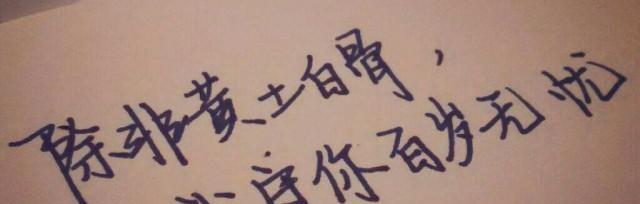 除非黄土白骨，
守你百岁无忧